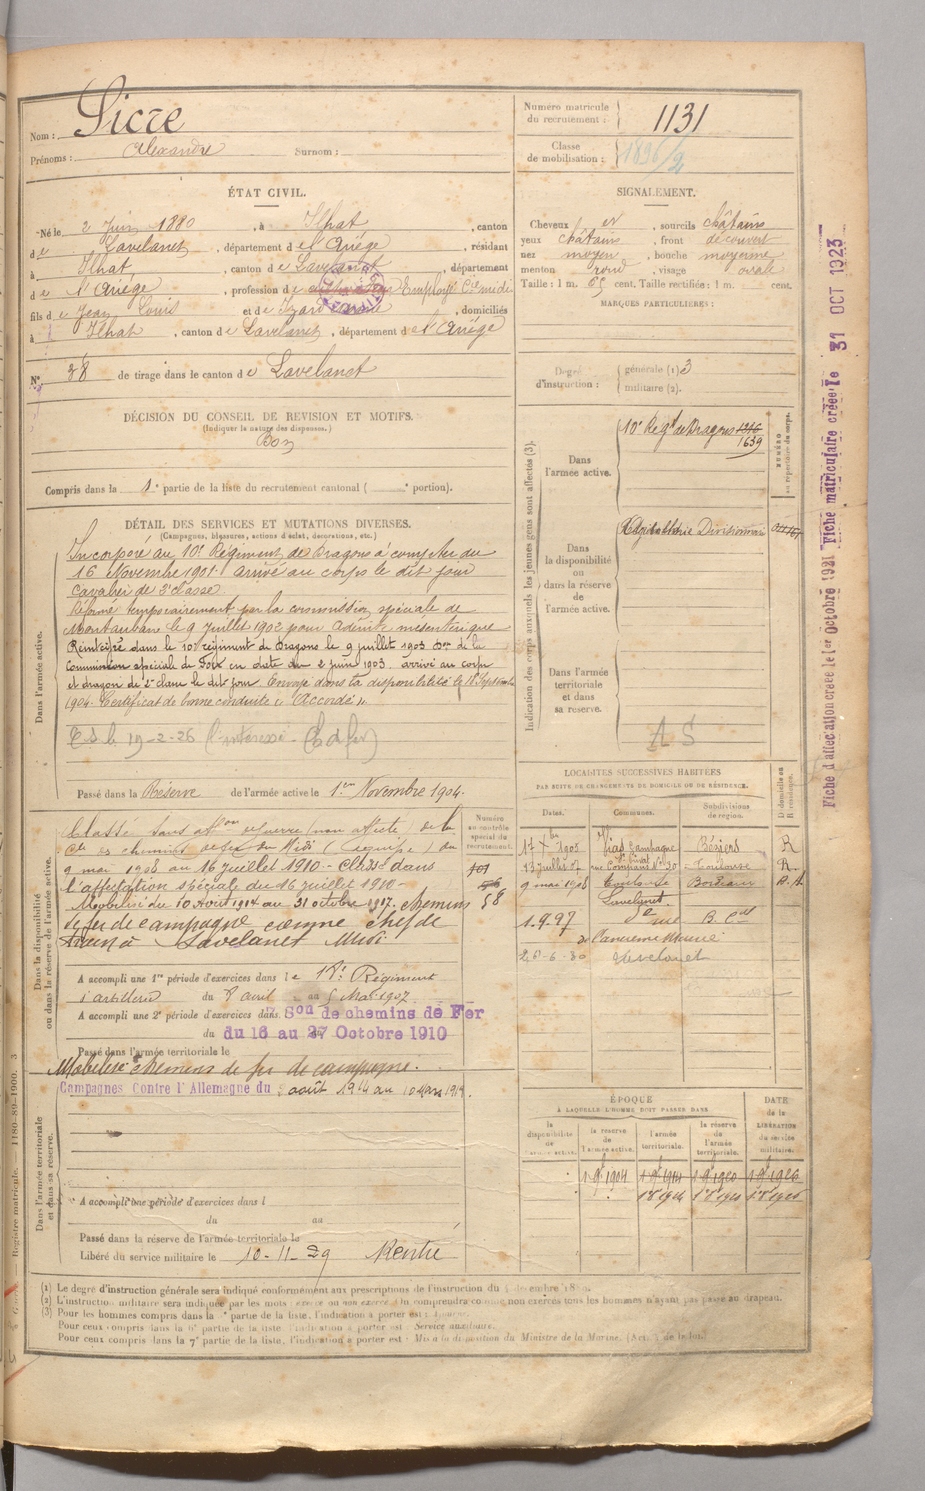 Nom : Sicre
Prénoms : Alexandre Surnom :
Numéro matricule du recrutement : 1131
Classe de mobilisation : 1896/2
ÉTAT CIVIL.
Né le 2 Juin 1880, à Ilhat, canton
de Lavelanet, département de l'Ariège, résidant
à Ilhat, canton de Lavelanet, département
de l'Ariège, profession de Employé Cie midi
fils de Jean Louis et de Izard, domiciliés
à Ilhat, canton de Lavelanet, département de l'Ariège
N° 38 de tirage dans le canton de Lavelanet
SIGNALEMENT.
Cheveux et, sourcils châtains
yeux châtains, front découvert
nez moyen, bouche moyenne
menton rond, visage ovale
Taille : 1 m. 65 cent. Taille rectifiée : 1 m. cent.
MARQUES PARTICULIÈRES :
Degré d'instruction : générale (1) 3
militaire (2).
DÉCISION DU CONSEIL DE REVISION ET MOTIFS.
(Indiquer la nature des dispenses.)
Bon
Compris dans la 1e partie de la liste du recrutement cantonal ( e portion).
DÉTAIL DES SERVICES ET MUTATIONS DIVERSES.
(Campagnes, blessures, actions d'éclat, décorations, etc.)
Dans l'armée active.
Incorporé au 10e Régiment de Dragons à compter du
16 Novembre 1901. arrivé au corps le dit jour
cavalier de 2e classe.
Réformé temporairement par la commission spéciale de
Montauban le 9 Juillet 1902 pour Adénite mésentérique
Réintégré dans le 10e régiment de Dragons le 9 juillet 1903 Don de la
Commission spéciale de Foix en date du 2 juin 1903. arrivé au corps
et dragon de 2e classe le dit jour. Envoyé dans la disponibilité le 18 Septembre
1904. Certificat de bonne conduite « Accordé »
19-2-26 (l'intéressé
Passé dans la Réserve de l'armée active le 1er Novembre 1904.
Dans la disponibilité ou dans la réserve de l'armée active.
Numéro au contrôle spécial du recrutement.
Classé sans affon de guerre (non affecté) de la
Cie des chemins de fer du Midi (équipe) du
9 mai 1908 au 16 juillet 1910 - Classé dans
l'affectation spéciale du 16 juillet 1910 -
Mobilisé du 10 août 1914 au 31 octobre 1917. chemins
de fer de campagne comme chef de
train à Lavelanet Midi
58
A accompli une 1re période d'exercices dans le 18e Régiment
d'artillerie du 8 avril au 5 Mai 1907
A accompli une 2e période d'exercices dans 7 Son de chemins de Fer
du 16 au 27 Octobre 1910
Passé dans l'armée territoriale le
Mobilisé chemins de fer de campagne.
Campagnes Contre l'Allemagne du 2 août 1914 au 10 Mars 1919.
Dans l'armée territoriale et dans sa réserve.
A accompli une période d'exercices dans l
du au
Passé dans la réserve de l'armée territoriale le
Libéré du service militaire le 10-11-29
Indication des corps auxquels les jeunes gens sont affectés (3).
NUMÉRO au répertoire du corps.
Dans l'armée active. 10e Régt de Dragons 1316
1639
Dans la disponibilité ou dans la réserve de l'armée active.
Dans l'armée territoriale et dans sa réserve.
A S
LOCALITÉS SUCCESSIVES HABITÉES
PAR SUITE DE CHANGEMENTS DE DOMICILE OU DE RÉSIDENCE.
Dates. Communes. Subdivisions de région. D domicile ou R résidence.
17 Xbre 1905 Vias Campagne Béziers R
13 juillet 07 Toulouse R.
9 mai 1908 Toulouse Bordeaux
Lavelanet.
1.9.27 rue
de l'ancienne Mairie
26-6-30 Lavelanet
ÉPOQUE
À LAQUELLE L'HOMME DOIT PASSER DANS
la disponibilité de l'armée active.
la réserve de l'armée active.
l'armée territoriale.
la réserve de l'armée territoriale.
DATE de la LIBÉRATION du service militaire.
1 9bre 1904 1 9bre 1914 1 9bre 1920 1 9bre 1926
(1) Le degré d'instruction générale sera indiqué conformément aux prescriptions de l'instruction du
(2) L'instruction militaire sera indiquée par les mots : exercé ou non exercé. On comprendra comme non exercés tous les hommes n'ayant pas passé au drapeau.
(3) Pour les hommes compris dans la partie de la liste, l'indication à porter est :
Pour ceux compris dans la 6e partie de la liste, l'indication à porter est : Service auxiliaire.
Pour ceux compris dans la 7e partie de la liste, l'indication à porter est : Mis à la disposition du Ministre de la Marine.
Fiche d'affectation créée le 1er Octobre 1921 Fiche matriculaire créée le 31 OCT 1923
Registre matricule. — 1180-89-1900. 3